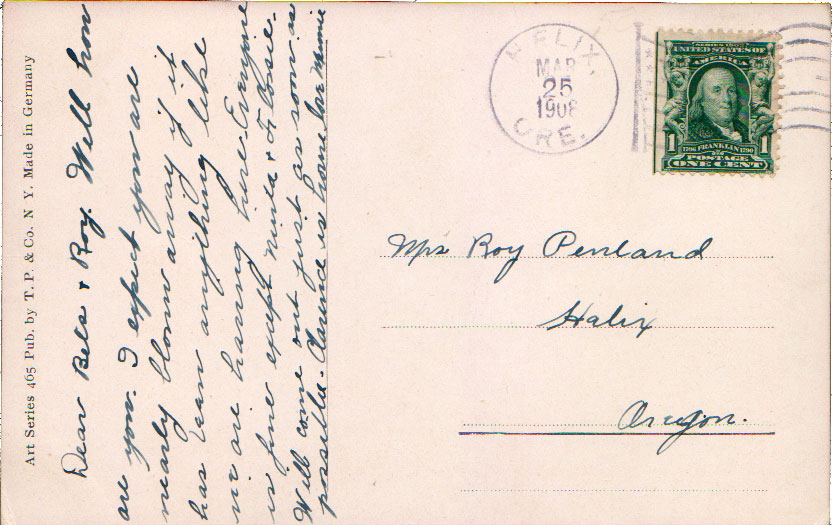 Art Series 465 Pub. by T. P. & Co. N Y. Made in Germany
Dear Bels & Roy. Well how
are you. I expect you are
nearly blown away if it
has been anything like
we are having here. Everyone
is fine except Minta &
Will come out just as soon as
possible. Clarence is home
HELIX,
MAR
25
1908
ORE.
SERIES 1902
UNITED STATES OF
AMERICA
1 1706 FRANKLIN 1790 1
POSTAGE
ONE CENT
Mrs Roy Penland
Helix
Oregon.